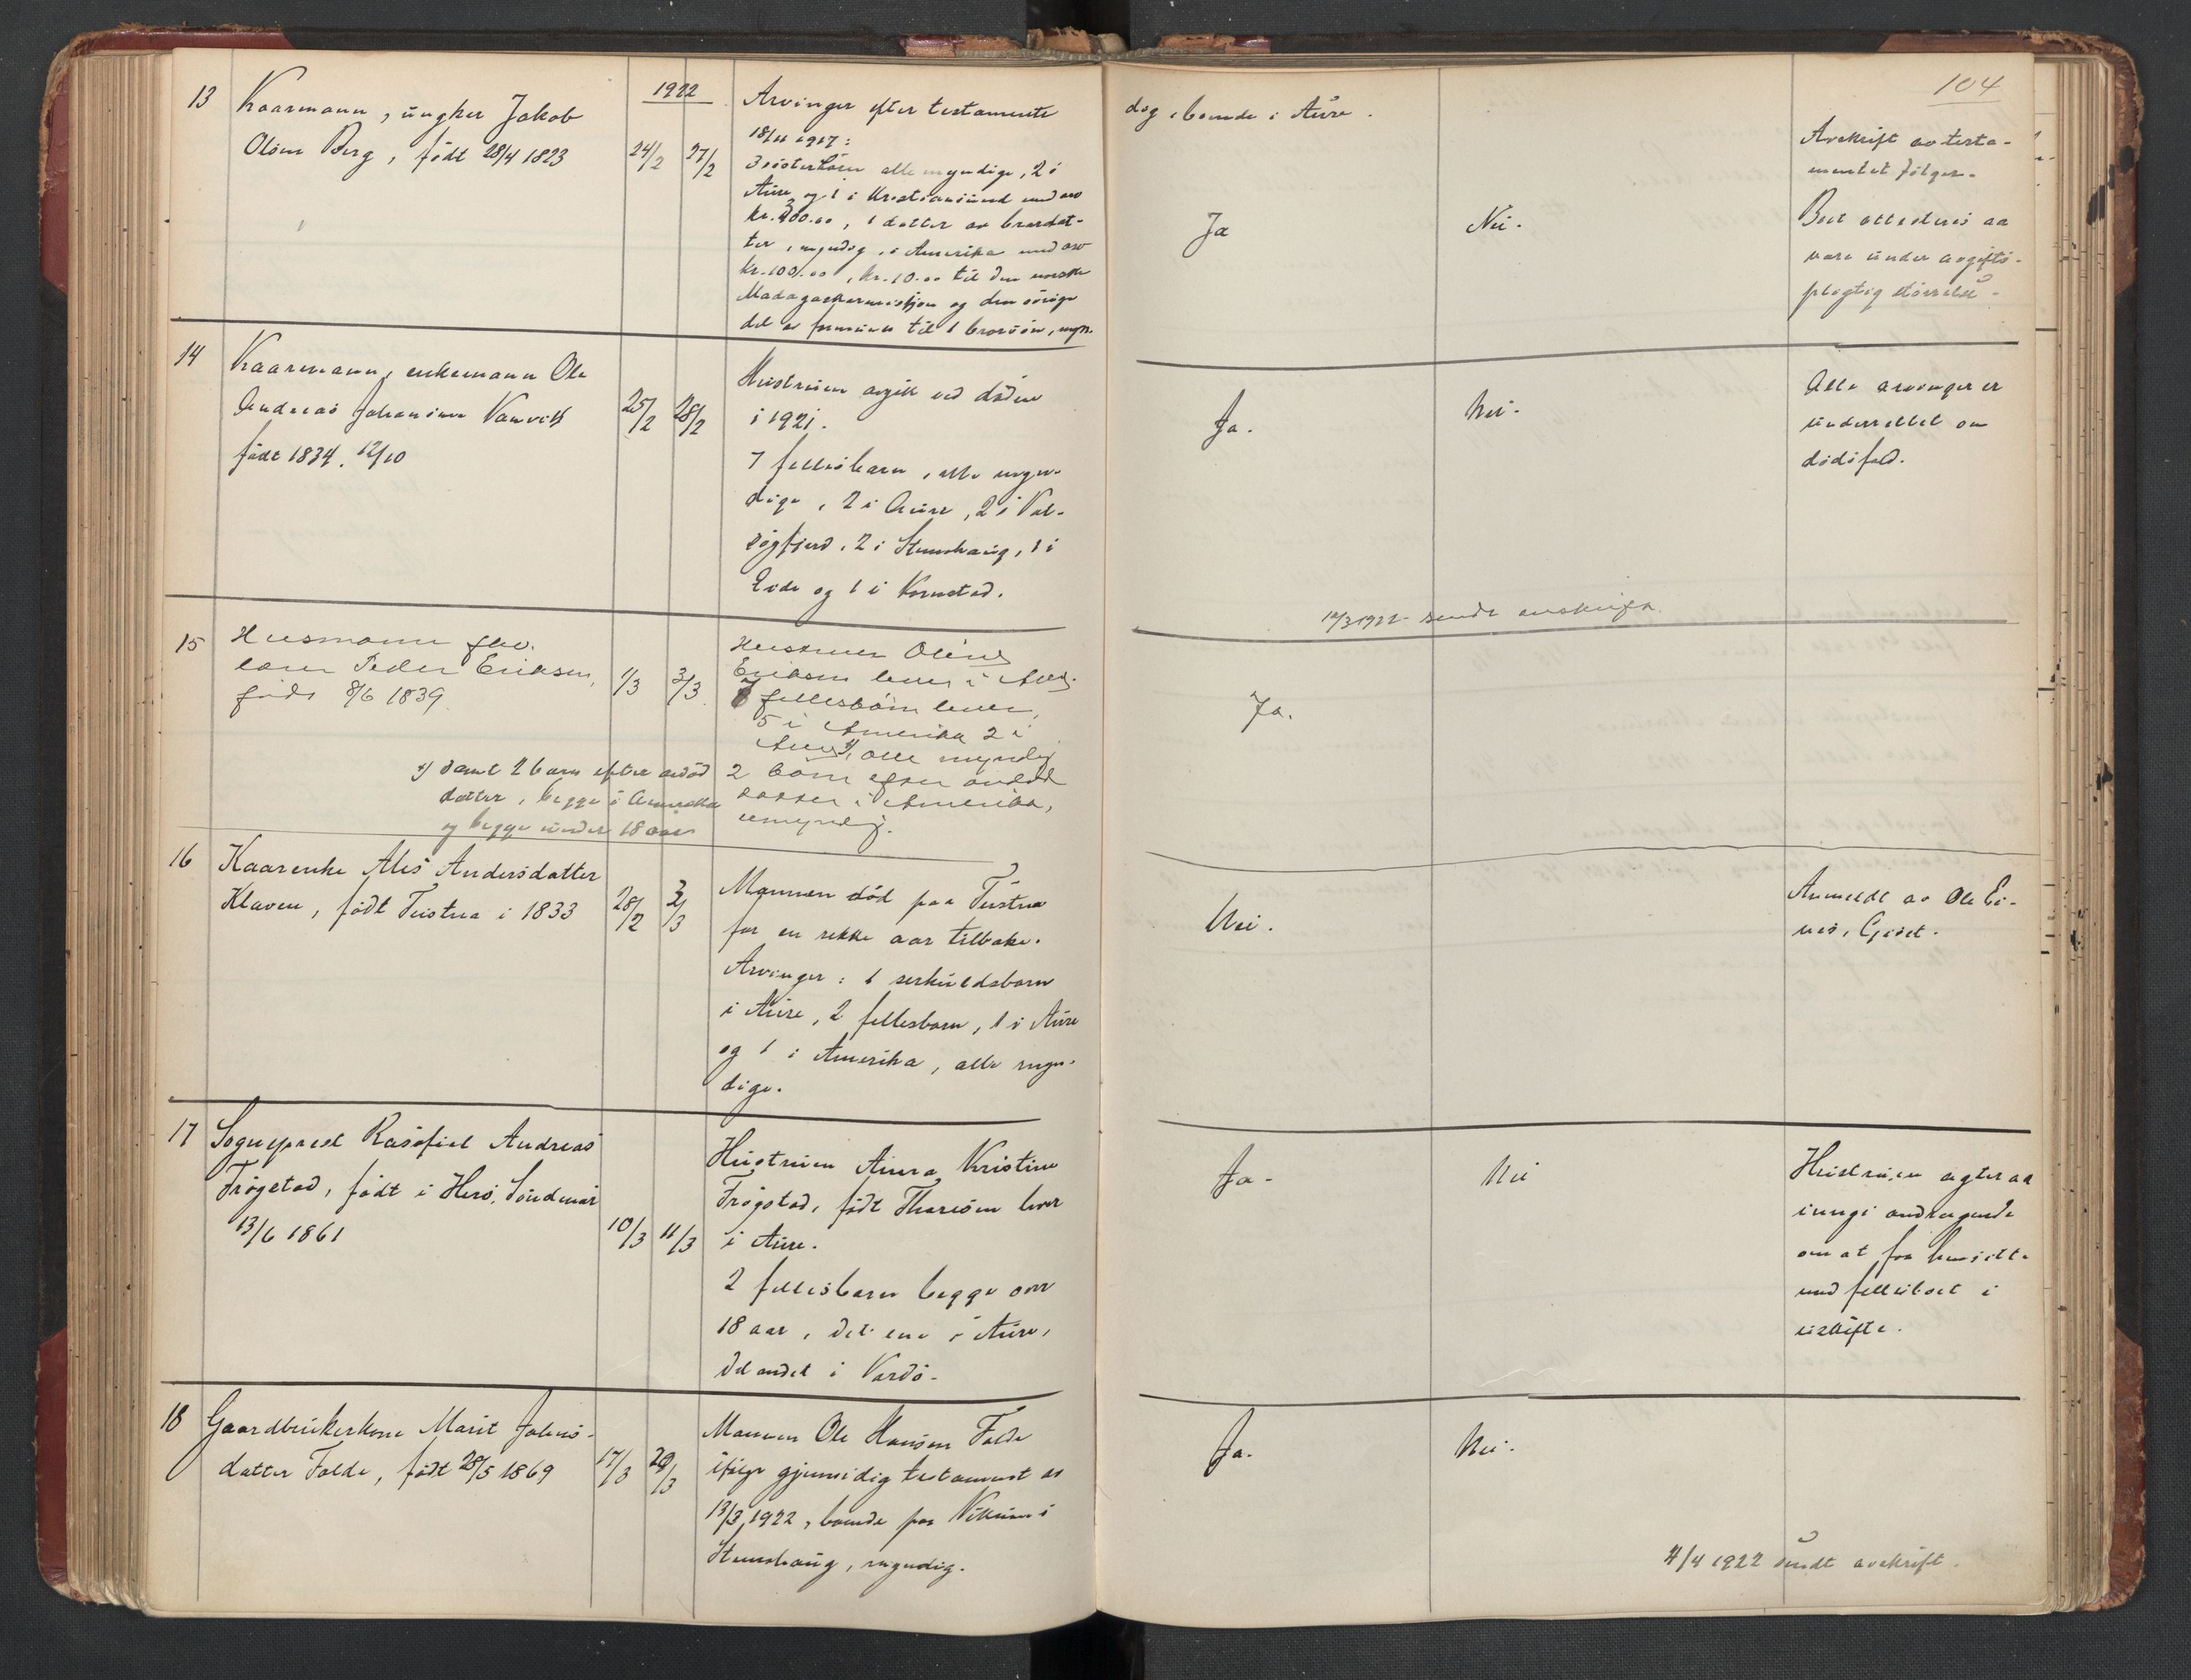 1922
13 Kaarmann, ungkar Jakob
Olsen Berg, født 28/4 1823
24/2 27/2
Arvinger efter testamente
18/11 1917:
3 søsterbørn alle myndige, 2 i
Aure og 1 i Kristiansund med arv
kr. 200.00, 1 datter av brordat-
ter, myndig, i Amerika med arv
kr. 100.00, kr. 10.00 til den norske
Madagaskarmisjon og den øvrige
del av formuen til 1 brorsøn, myn-
14 Kaarmann, enkemann Ole
Andreas Johansen Vanvik
født 1834. 12/10
25/2 28/2
Hustruen avgik ved døden
i 1921.
7 fellesbarn, alle myn-
dige, 2 i Aure, 2 i Val-
søyfjord, 2 i Stemshaug, 1 i
Eide og 1 i Kornstad.
15 Husmann
Peder Eriksen,
født 8/6 1839.
1/3 3/3
Hustruen Oline
Eriksen lever i Aure.
7 fellesbørn lever,
5 i Amerika 2 i
Aure x), alle myndig
2 børn efter avdød
datter i Amerika,
umyndig.
x) samt 2 barn efter avdød
datter, begge i Amerika
og begge under 18 aar
16 Kaarenke Ales Andersdatter
Klaven, født Tustna i 1833
28/2 2/3
Mannen død paa Tustna
for en rekke aar tilbake.
Arvinger: 1 serkuldsbarn
i Aure, 2 fellesbarn, 1 i Aure
og 1 i Amerika, alle myn-
dige.
17 Sogneprest Rasofiel Andreas
Frøystad, født i Herø, Søndmør
13/6 1861
10/3 11/3
Hustruen Anna Kristine
Frøystad, født Thoresen lever
i Aure.
2 fellesbarn begge over
18 aar, det ene i Aure,
det andet i Vardø.
18 Gaardbrukerkone Marit Johns-
datter Folde, født 28/5 1869
17/3 20/3
Mannen Ole Hansen Folde
ifølge gjensidig testament av
13/3 1922, boende paa Nikum i
Stemshaug, myndig.
104
dig, boende i Aure.
Ja Nei.
Avskrift av testa-
mentet følger.
Boet attesteres aa
være under avgifts-
pligtig størrelse.
Ja. Nei.
Alle arvinger er
underrettet om
dødsfald.
12/3 1922 sendt avskrift.
Ja.
Nei.
Anmeldt av Ole Ei-
nes, Gjøset.
Ja. Nei
Hustruen agter aa
inngi andragende
om at faa hensitte
med fellesboet i
uskifte.
Ja. Nei.
4/4 1922 sendt avskrift.